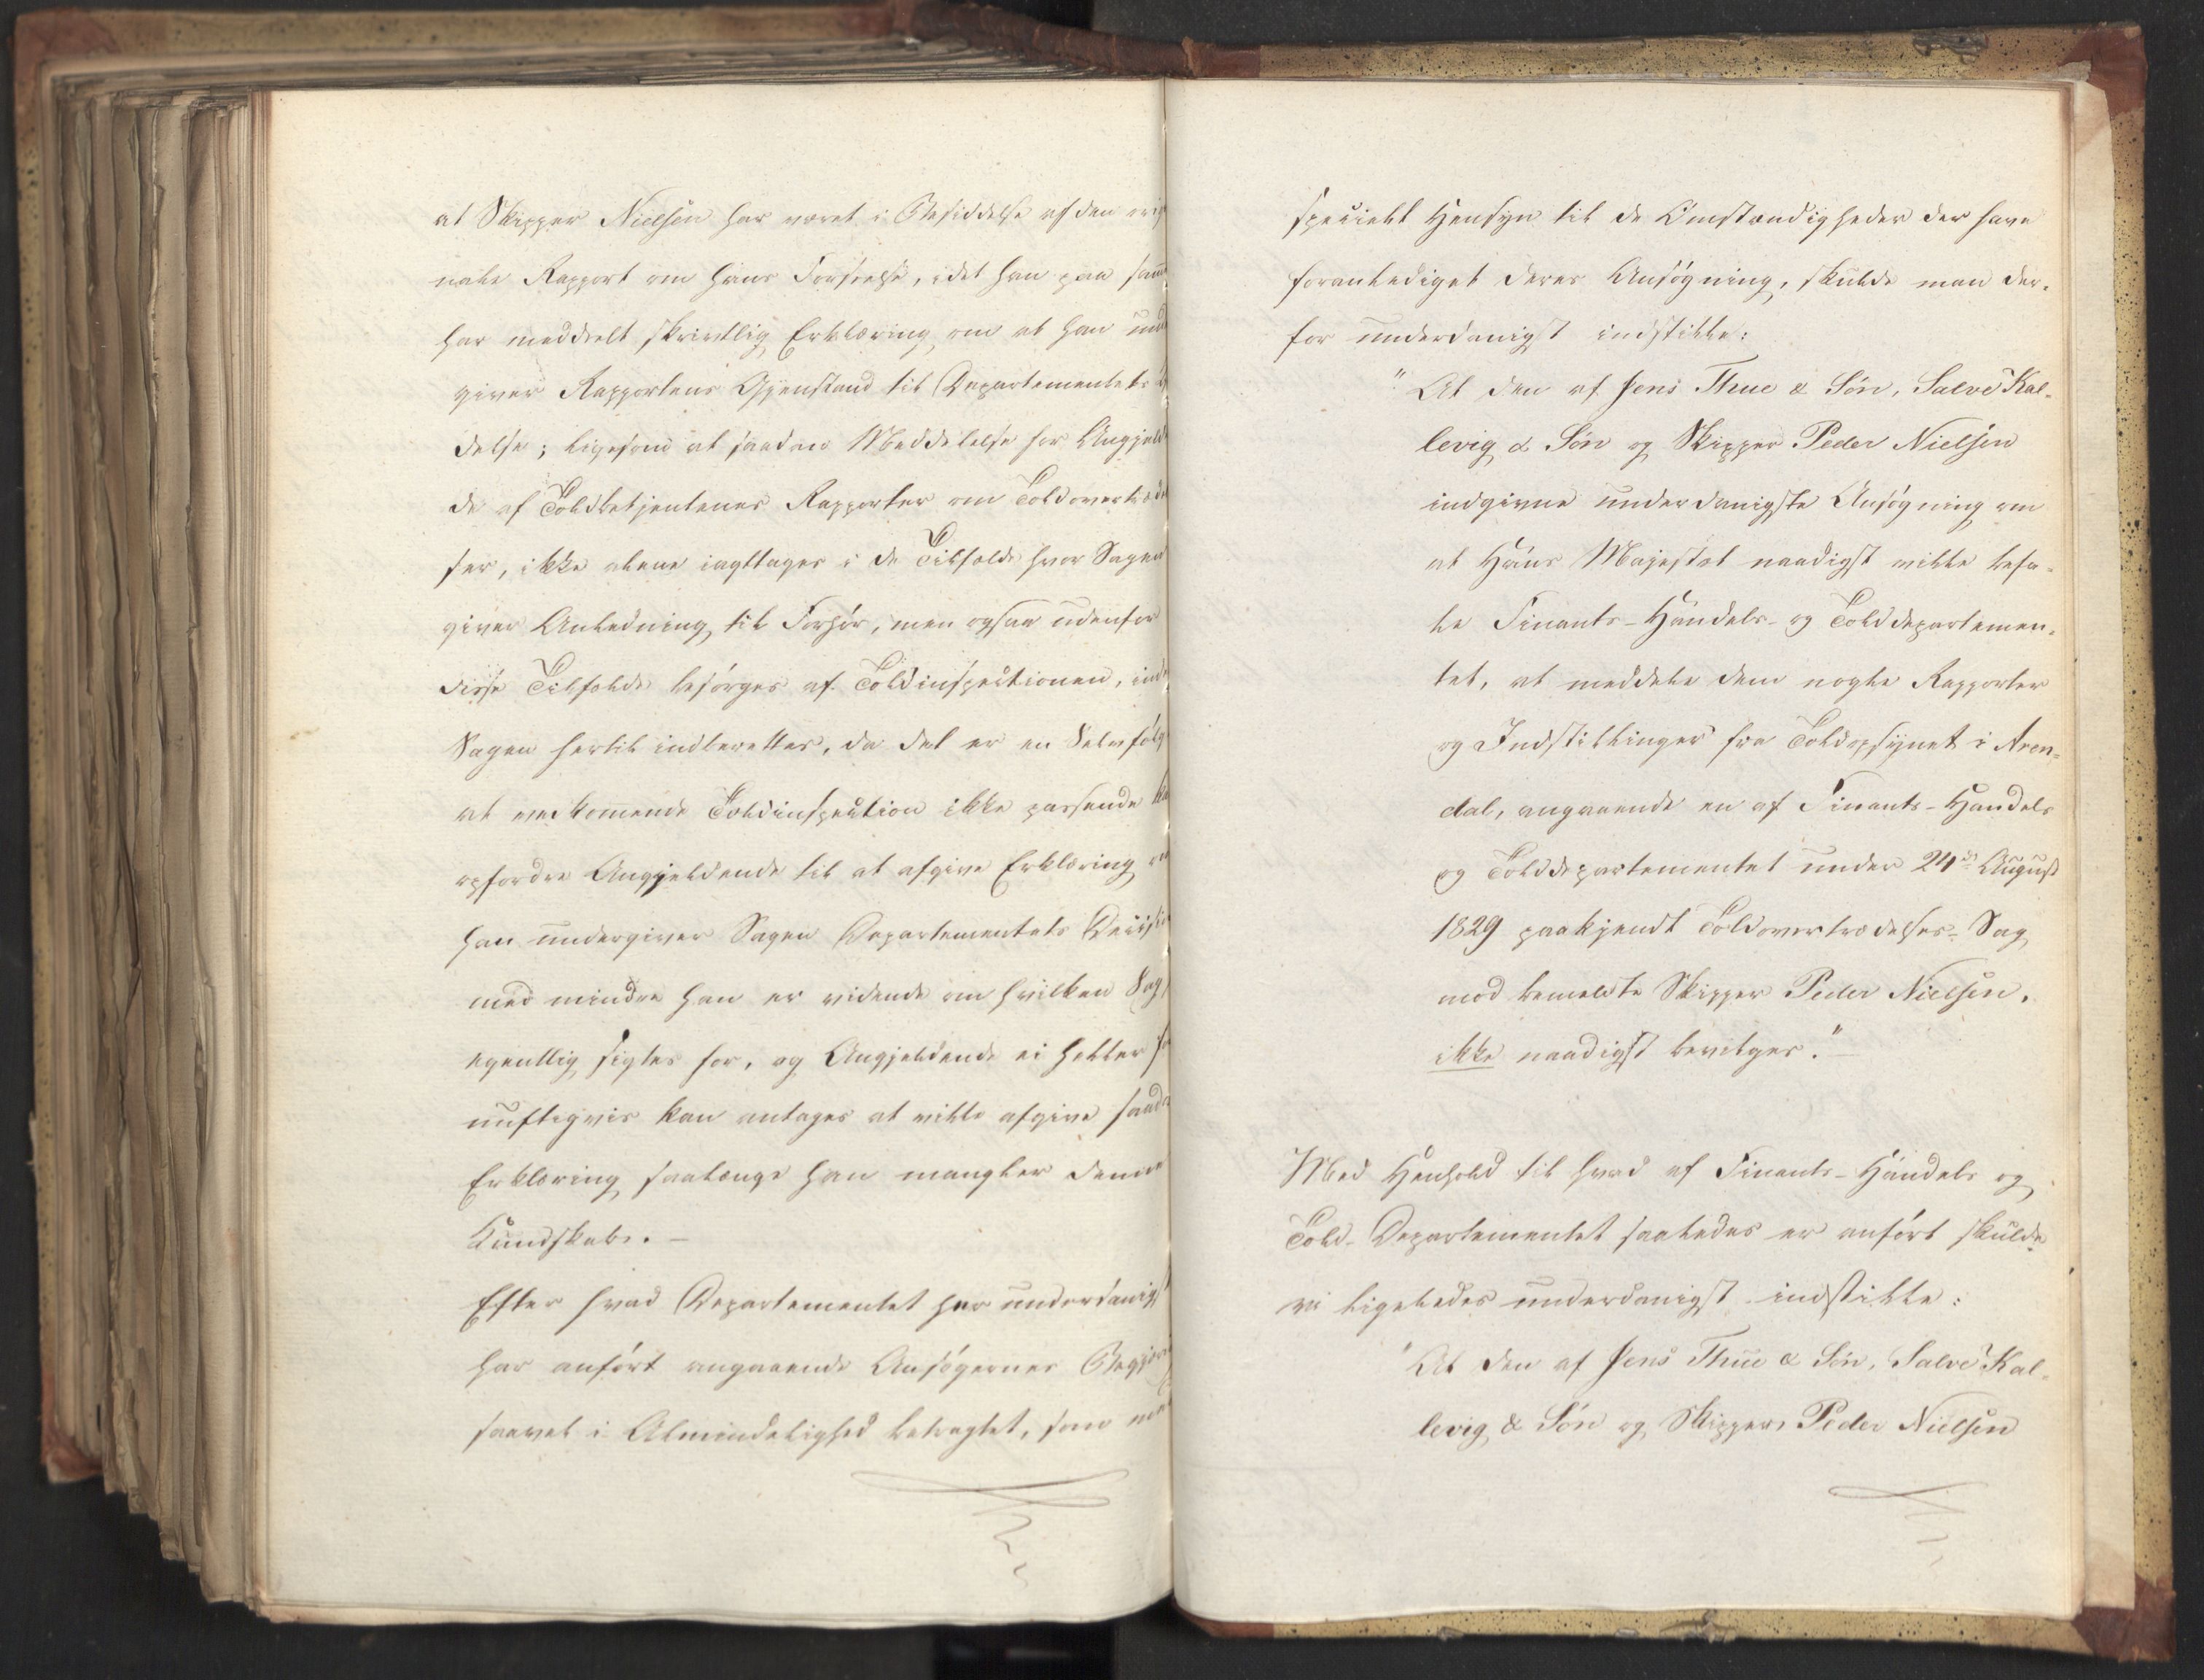 at Skipper Nielsen har været i Besiddelse af den orig
nale Rapport om hans Forseelse, idet han paa sam
har meddelt skrivtlig Erklæring om at han und
giver Rapportens Gjenstand til Departementets
delse; ligesom at saadan Meddelelse for Angjeld
de af Toldbetjentenes Rapporter om Toldovertræd
ser, ikke alene iagttages i de Tilfælde hvor Sagen
giver Anledning til Forhör, men ogsaa udenfor
disse Tilfælde besörges af Toldinspectionen, ind
Sagen hertil indberettes, da det er en Selvfölg
at vedkommende Toldinspection ikke passende ka
opfordre Angjeldende til at afgive Erklæring om
han undergiver Sagen Departementets Decision
med mindre han er vidende om hvilken Sag
egentlig sigtes for, og Angjeldende ei heller for
nuftigvis kan antages at ville afgive saadan
Erklæring saalænge han mangler denne
Kundskab. –
Efter hvad Departementet her underdanigst
har anfört angaaende Ansögernes Begjæring
saavel i Almindelighed betragtet, som med
specielt Hensyn til de Omstændigheder der have
foranlediget deres Ansögning, skulde man der-
for underdanigst indstille:
"At den af Jens Thue & Sön, Salve Kal-
levig & Sön og Skipper Peder Nielsen
indgivne underdanigste Ansögning om
at Hans Majestæt naadigst vilde befa-
le Finants-Handels- og Tolddepartemen-
tet, at meddele dem nogle Rapporter
og Indstillinger fra Toldopsynet i Aren-
dal, angaaende en af Finants-Handels
og Tolddepartementet under 24de August
1829 paakjendt Toldovertrædelses-Sag
mod bemeldte Skipper Peder Nielsen,
ikke naadigst bevilges." –
Med Henhold til hvad af Finants-Handels og
Told-Departementet saaledes er anfört skulde
vi ligeledes underdanigst indstille:
"At den af Jens Thue & Sön, Salve Kal-
levig & Sön og Skipper Peder Nielsen